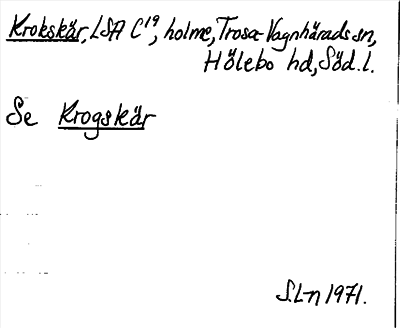 Krokskär, LSA C19, holme, Trosa-Vagnhärads sn,
Hölebo hd, Söd. l.
Se Krogskär
S.L-n 1971.